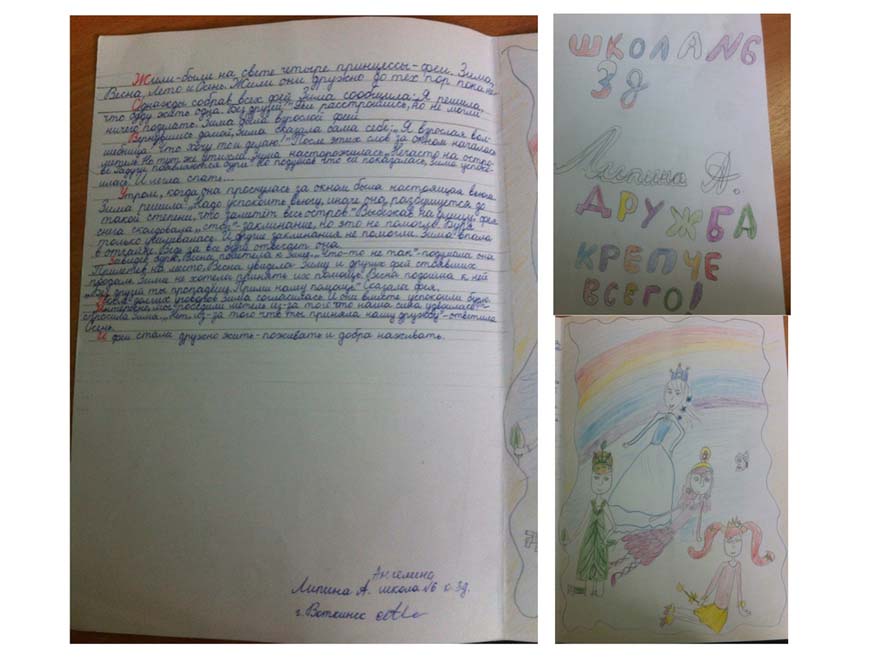 Жили-были на свете четыре принцессы-феи. Зима,
Весна, Лето и Осень. Жили они дружно до тех пор пока, не
Однажды собрав всех фей Зима сообщила: „Я решила,
что буду жить одна. Без друзей." Феи расстроились, но не могли
ничего поделать. Зима была взрослой феей.
Вернувшись домой, Зима сказала сама себе: „Я взрослая вол-
шебница. Что хочу то и делаю!" После этих слов за окном началась
метель. Но тут же утихла. Зима насторожилась. Нечасто на остро-
ве Радуги появляются бури. Но подумав что ей показалась, Зима успоко-
илась. И легла спать...
Утром, когда она проснулась за окном была настоящая вьюга.
Зима решила: „Надо успокоить вьюгу, иначе она разбушуется до
такой степени, что заметёт весь остров." Выбежав на улицу, фея
снега сколдовала „стоп"-заклинание, но это не помогло. Буря
только увеличивалась. И другие заклинания не помогли. Зима впала
в отчайку. Ведь за все бури отвечает она.
Завидев бурю, Весна, полетела к Зиме. „Что-то не так"-подумала она
Прилетев на место, Весна увидела Зиму и других фей стоявших
рядом. Зима не хотела принять их помощь. Весна подошла к ней
„Без друзей ты пропадёшь. Прими нашу помощь" Сказала фея.
После долгих уговоров Зима согласилась. И они вместе успокоили бурю.
„Интересно, мы победили метель из-за того что наша сила удвоилась?"-
спросила Зима. „Нет, из-за того что ты приняла нашу дружбу"-ответила
Осень.
И феи стали дружно жить-поживать и добра наживать.
Ангелина
Липина А. школа №6 к. 3д.
г. Воткинск
ШКОЛА №6
3д
Липина А.
ДРУЖБА
КРЕПЧЕ
ВСЕГО!